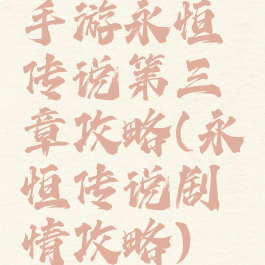 手游永恒
传说第三
章攻略(永
恒传说剧
情攻略)